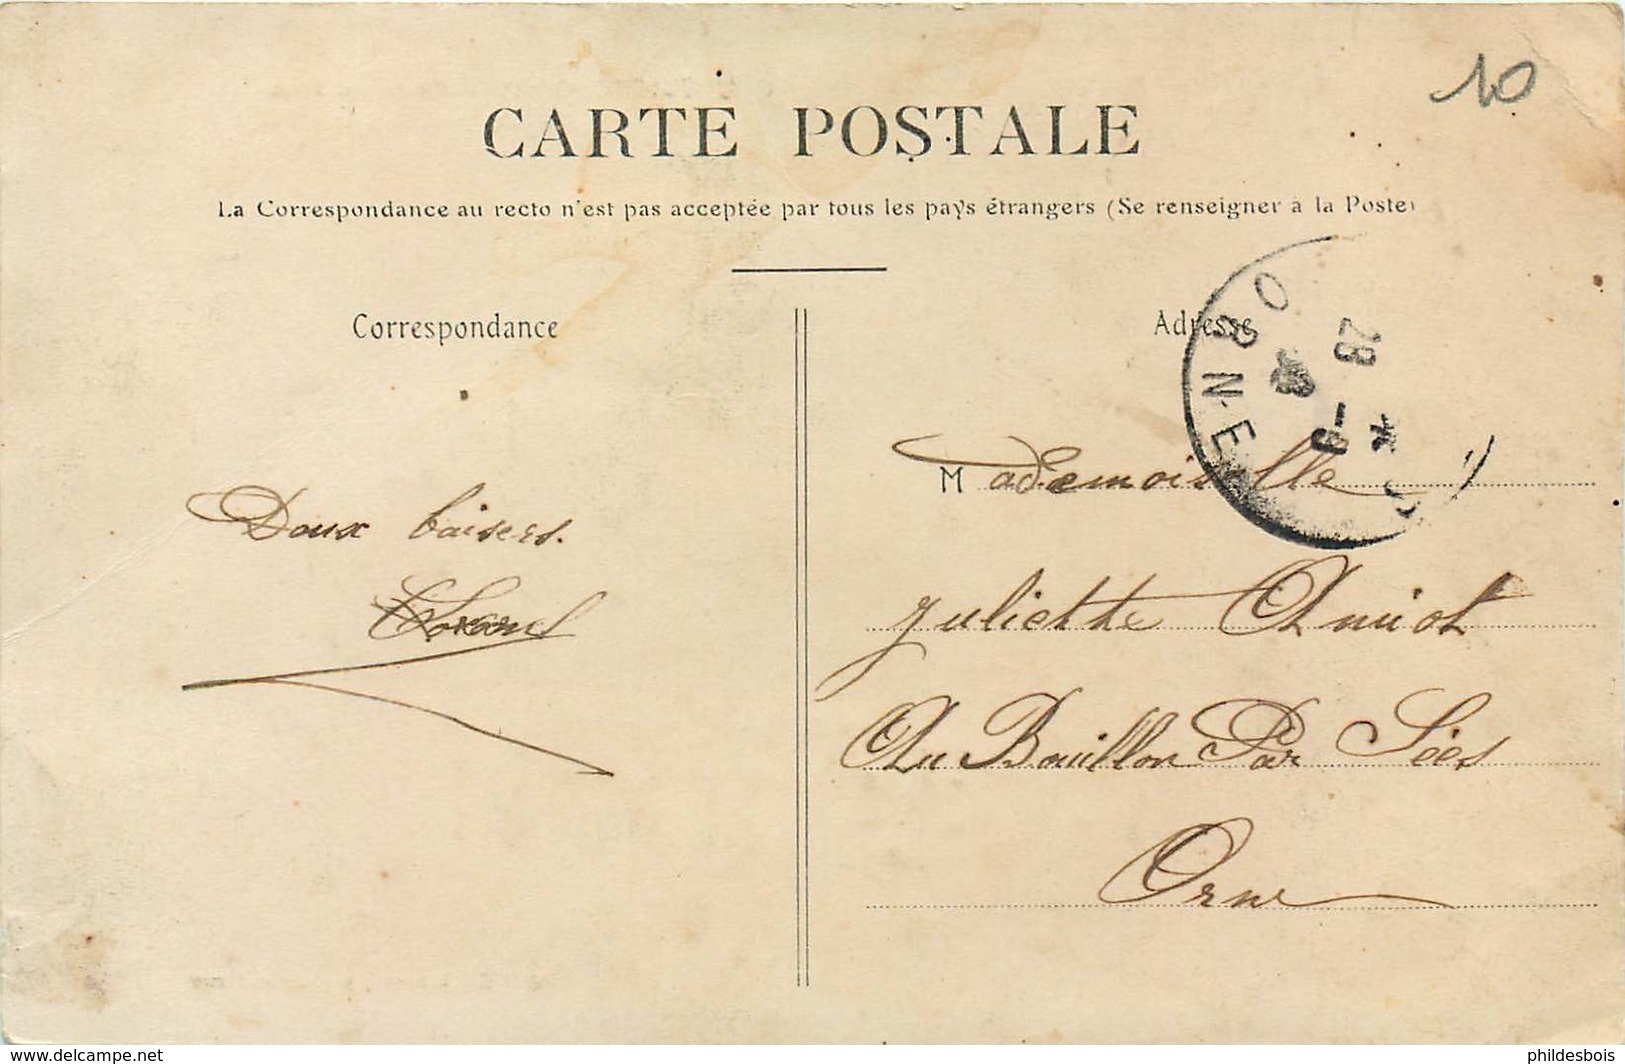 10
CARTE POSTALE
La Correspondance au recto n'est pas acceptée par tous les pays étrangers (Se renseigner à la Poste)
Correspondance
Doux baisers.
Adresse
ORNE
28
Mademoiselle
Juliette Amiot
Au Bouillon Par Sées
Orne
www.delcampe.net
phildesbois